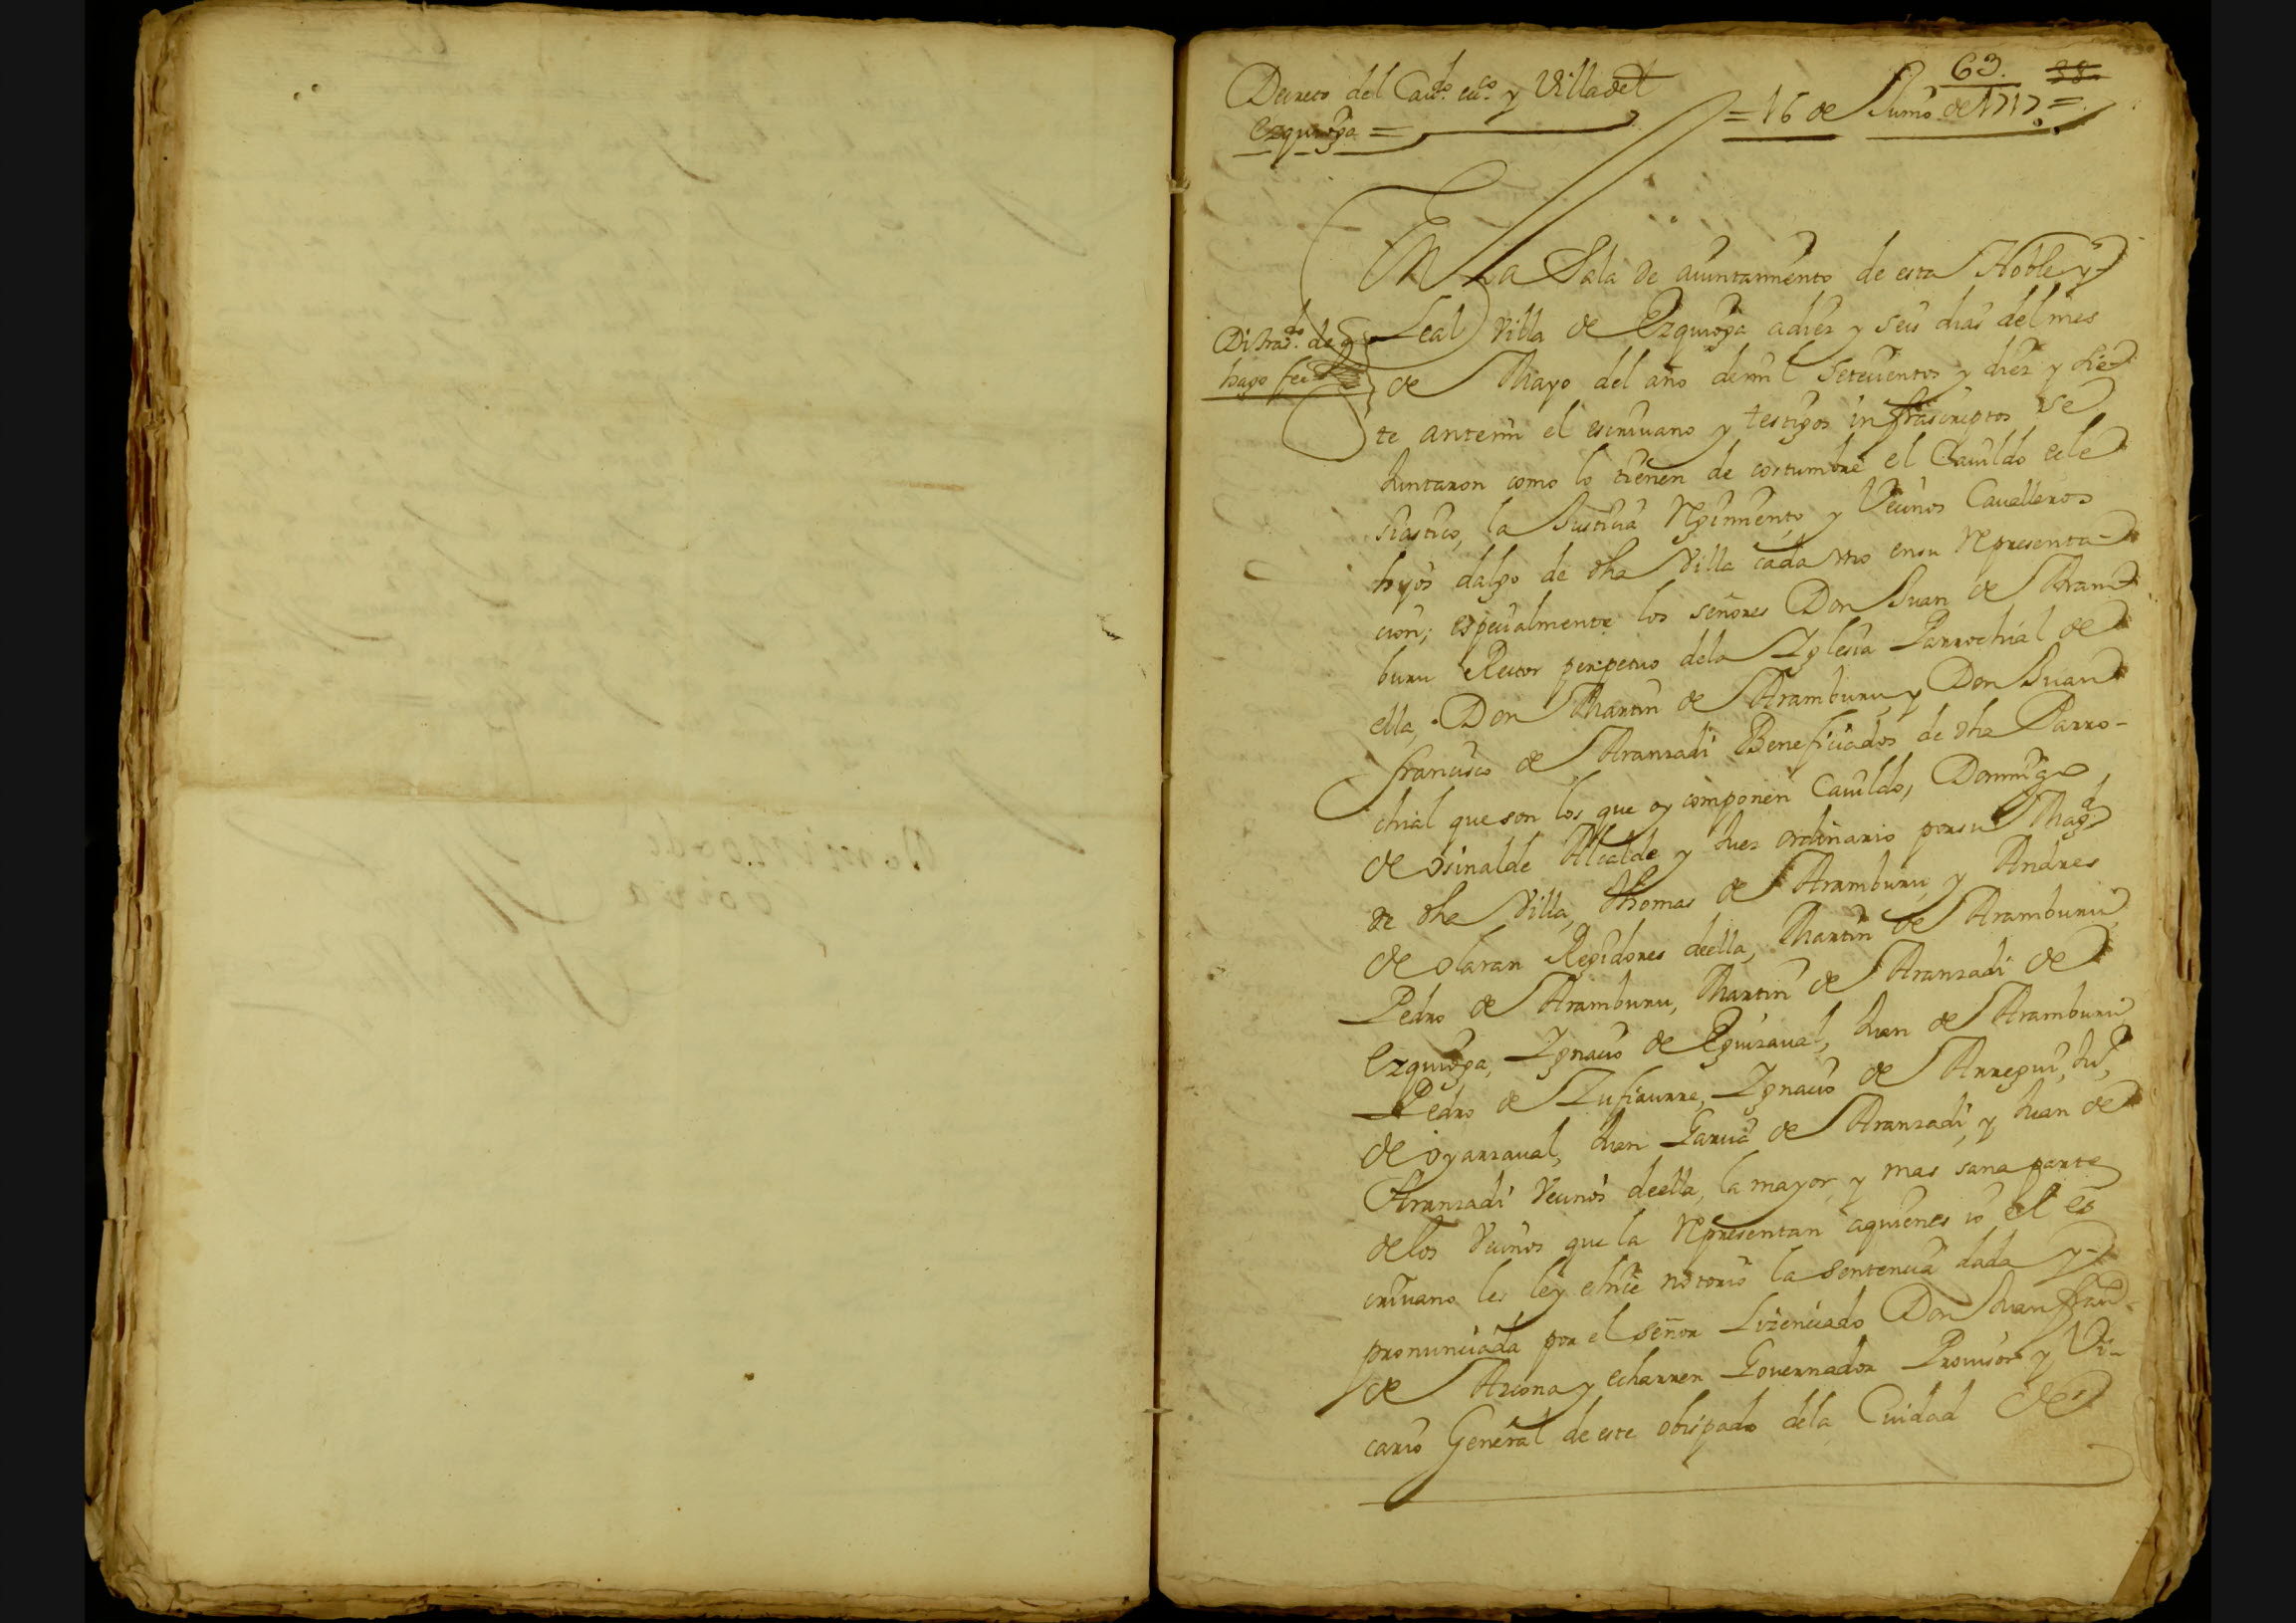 63. 38
Decreto del Caudo. ecco. y Villa de
Ezquioga =
= 16 de Junio de 1717 =
En La Sala de aiuntamiento de esta Noble y
Leal Villa de Ezquioga adiez y seis dias del mes
Di trasdo. de q
hago fee
de Mayo del año demil Setecientos y diez y sie
te antemi el escriuano y testigos infrascriptos se
Juntaron como lo tienen de costumbre el Cauildo ecle
siastico, la Justicia Regimiento y Vecinos Caualleros
hijos dalgo de dha Villa cada vno ensu Representa-
cion; especialmente los señores Don Juan de Aram
buru Rector perpetuo dela Iglesia Parrochial de
ella, Don Martin de Aramburu, y Don Juan
francisco de Aranzadi Beneficiados de dha Parro-
chial que son los que oy componen Cauildo, Domingo
de osinalde Alcalde y Juez ordinario porsu Magd
de dha Villa, Thomas de Aramburu, y Andres
de olaran Regidores deella, Martin de Aramburu,
Pedro de Aramburu, Martin de Aranzadi de
Ezquioga, Ignacio de Eguizaual, Juan de Aramburu
Pedro de Zufiaurre, Ignacio de Arregui, Ju,
de oyarzaual, Juan Garcia de Aranzadi, y Juan de
Aranzadi Vecinos deella, la mayor y mas sana parte
delos Vecinos que la Representan aquienes io el es
criuano les ley ehice notorio la sentencia dada y
pronunciada por el señor Lizenciado Don Juan fran
de Arcona y echarren Gouernador Prouisor y Vi-
cario General de este obispado dela Ciudad de